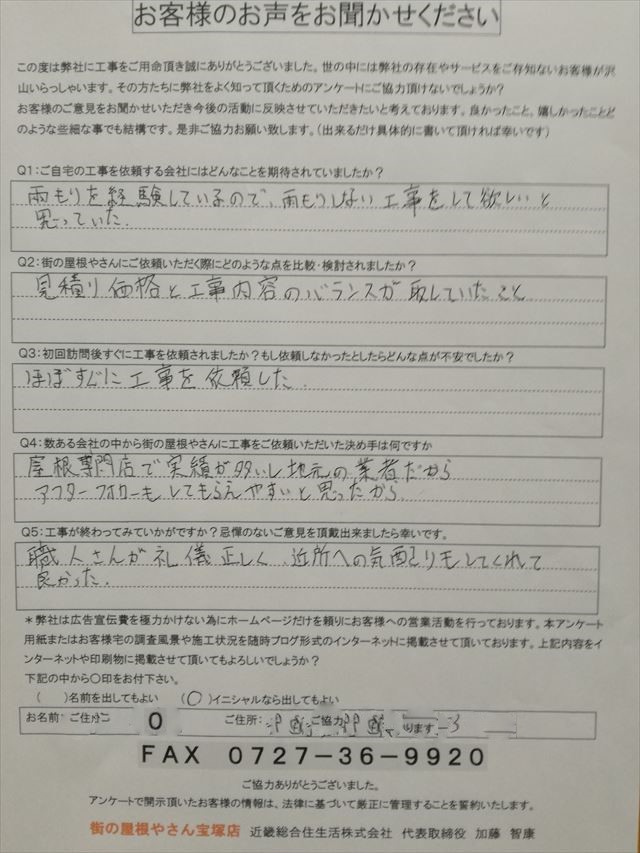 お客様のお声をお聞かせください
この度は弊社に工事をご用命頂き誠にありがとうございました。世の中には弊社の存在やサービスをご存知ないお客様が沢
山いらっしゃいます。その方たちに弊社をよく知って頂くためのアンケートにご協力頂けないでしょうか?
お客様のご意見をお聞かせいただき今後の活動に反映させていただきたいと考えております。良かったこと、嬉しかったことど
のような些細な事でも結構です。是非ご協力お願い致します。(出来るだけ具体的に書いて頂ければ幸いです)
Q1:ご自宅の工事を依頼する会社にはどんなことを期待されていましたか?
雨もりを経験しているので、雨もりしない工事をして欲しいと
思っていた。
Q2:街の屋根やさんにご依頼いただく際にどのような点を比較・検討されましたか?
見積り価格と工事内容のバランスが取れていたこと
Q3:初回訪問後すぐに工事を依頼されましたか?もし依頼しなかったとしたらどんな点が不安でしたか?
ほぼすぐに工事を依頼した。
Q4:数ある会社の中から街の屋根やさんに工事をご依頼いただいた決め手は何ですか
屋根専門店で実績が多いし地元の業者だから
アフターフォローもしてもらえやすいと思ったから。
Q5:工事が終わってみていかがですか?忌憚のないご意見を頂戴出来ましたら幸いです。
職人さんが礼儀正しく、近所への気配りもしてくれて
良かった。
*弊社は広告宣伝費を極力かけない為にホームページだけを頼りにお客様への営業活動を行っております。本アンケート
用紙またはお客様宅の調査風景や施工状況を随時ブログ形式のインターネットに掲載させて頂いております。上記内容をイ
ンターネットや印刷物に掲載させて頂いてもよろしいでしょうか?
下記の中から〇印をお付下さい。
( )名前を出してもよい (〇)イニシャルなら出してもよい
お名前 O ご住所:
FAX 0727-36-9920
ご協力ありがとうございました。
アンケートで開示頂いたお客様の情報は、法律に基づいて厳正に管理することを誓約いたします。
街の屋根やさん宝塚店 近畿総合住生活株式会社 代表取締役 加藤 智康